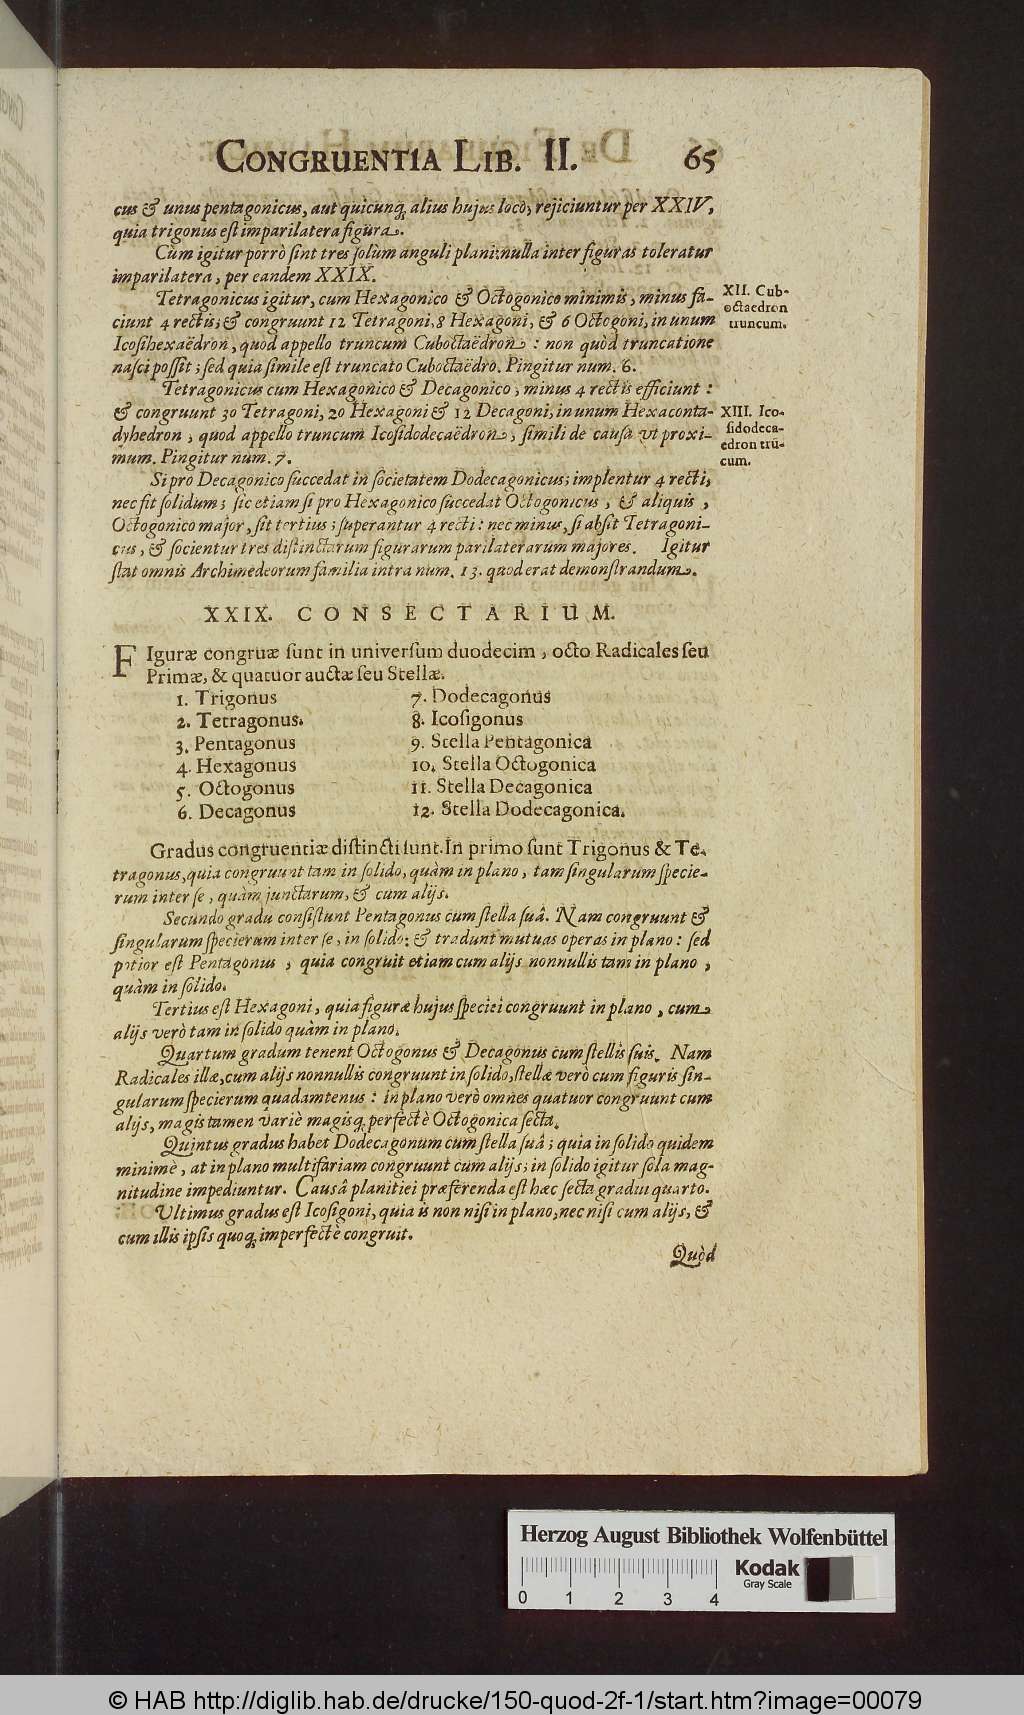 CONGRUENTIA LIB. II. 65
cus & unus pentagonicus, aut quicunq; alius hujus loco, rejiciuntur per XXIV,
quia trigonus est imparilatera figura.
Cùm igitur porrò sint tres solùm anguli plani: nulla inter figuras toleratur
imparilatera, per eandem XXIX.
Tetragonicus igitur, cum Hexagonico & Octogonico minimis, minus fa-
ciunt 4 rectis; & congruunt 12 Tetragoni, 8 Hexagoni, & 6 Octogoni, in unum
Icosihexaëdron, quod appello truncum Cuboctaëdron: non quòd truncatione
nasci possit; sed quia simile est truncato Cuboctaëdro. Pingitur num. 6.
XII. Cub-
octaedron
truncum.
Tetragonicus cum Hexagonico & Decagonico, minus 4 rectis efficiunt:
& congruunt 30 Tetragoni, 20 Hexagoni & 12 Decagoni, in unum Hexaconta-
dyhedron, quod appello truncum Icosidodecaëdron, simili de causa ut proxi-
mum. Pingitur num. 7.
XIII. Ico-
sidodeca-
edron trū-
cum.
Si pro Decagonico succedat in societatem Dodecagonicus; implentur 4 recti,
nec fit solidum; sic etiam si pro Hexagonico succedat Octogonicus, & aliquis,
Octogonico major, sit tertius; superantur 4 recti: nec minus, si absit Tetragoni-
cus, & socientur tres distinctarum figurarum parilaterarum majores. Igitur
stat omnis Archimedeorum familia intra num. 13. quod erat demonstrandum.
XXIX. CONSECTARIUM.
FIguræ congruæ sunt in universum duodecim, octo Radicales seu
Primæ, & quatuor auctæ seu Stellæ.
1. Trigonus
2. Tetragonus.
3. Pentagonus
4. Hexagonus
5. Octogonus
6. Decagonus
7. Dodecagonus
8. Icosigonus
9. Stella Pentagonica
10. Stella Octogonica
11. Stella Decagonica
12. Stella Dodecagonica.
Gradus congruentiæ distincti sunt. In primo sunt Trigonus & Te-
tragonus, quia congruunt tam in solido, quàm in plano, tam singularum specie-
rum inter se, quàm junctarum, & cum alijs.
Secundo gradu consistunt Pentagonus cum stella suâ. Nam congruunt &
singularum specierum inter se, in solido; & tradunt mutuas operas in plano: sed
potior est Pentagonus, quia congruit etiam cum alijs nonnullis tam in plano,
quàm in solido.
Tertius est Hexagoni, quia figuræ hujus speciei congruunt in plano, cum
alijs verò tam in solido quàm in plano.
Quartum gradum tenent Octogonus & Decagonus cum stellis suis. Nam
Radicales illæ, cum alijs nonnullis congruunt in solido, stellæ verò cum figuris sin-
gularum specierum quadamtenus: in plano verò omnes quatuor congruunt cum
alijs, magis tamen variè magisq; perfectè Octogonica secta.
Quintus gradus habet Dodecagonum cum stella suâ; quia in solido quidem
minimè, at in plano multifariam congruunt cum alijs; in solido igitur sola mag-
nitudine impediuntur. Causâ planitiei præferenda est hæc secta gradui quarto.
Ultimus gradus est Icosigoni, quia is non nisi in plano, nec nisi cum alijs, &
cum illis ipsis quoq; imperfectè congruit.
Quòd
Herzog August Bibliothek Wolfenbüttel
0 1 2 3 4
Kodak
Gray Scale
© HAB http://diglib.hab.de/drucke/150-quod-2f-1/start.htm?image=00079